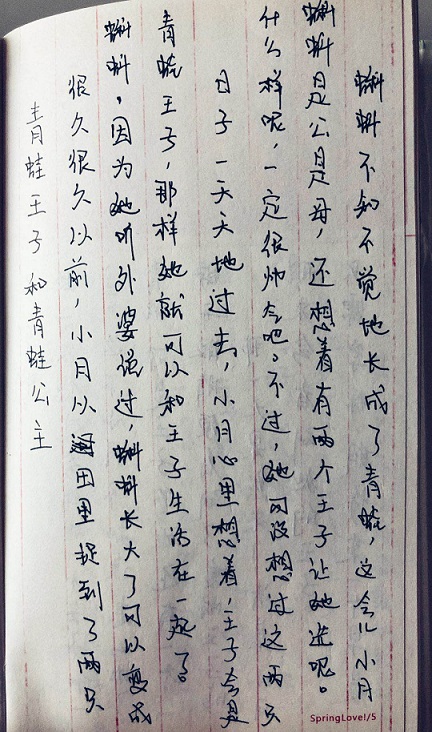 青蛙王子和青蛙公主
很久很久以前，小月从田里捉到了两只
蝌蚪，因为她听外婆说过，蝌蚪长大了可以变成
青蛙王子，那样她就可以和王子生活在一起了。
日子一天天地过去，小月心里想着，王子会是
什么样呢，一定很帅气吧。不过，她可没想过这两只
蝌蚪是公是母，还想着有两个王子让她选呢。
蝌蚪不知不觉地长成了青蛙，这会儿小月
SpringLove!/5